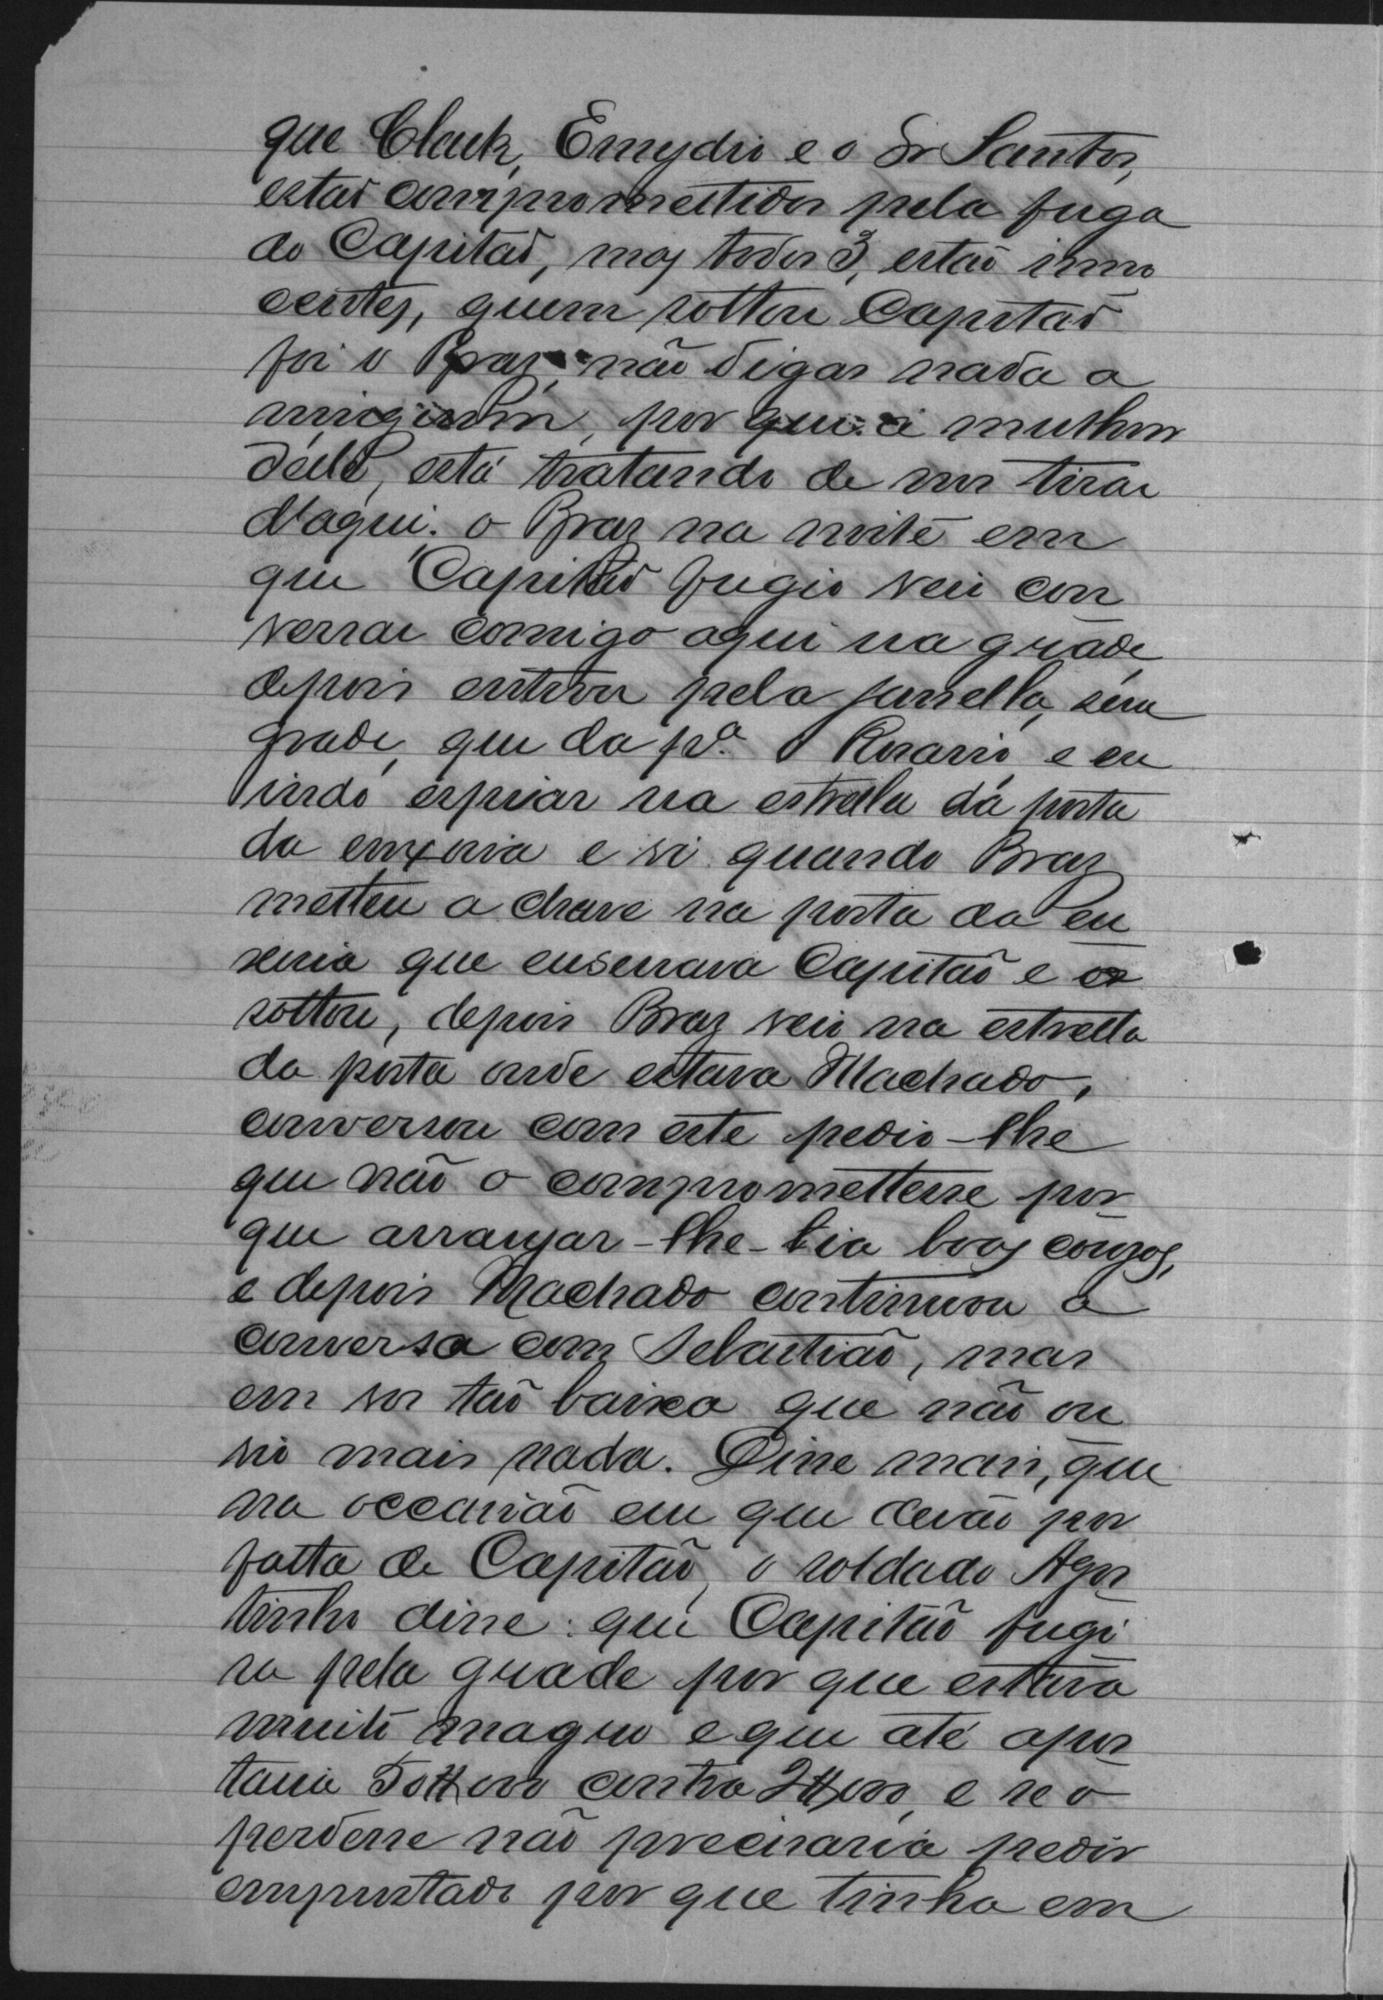 que Clark, Emydio e o Dr Santos,
estaõ compromettidos pela fuga
do Capitaõ, mas todos 3, estaõ inno
centes, quem soltou Capitaõ
foi o Braz, não digas nada a
ninguem, por que a mulher
delle, está tratando de nos tirar
d'aqui. o Braz na noite em
que Capitaõ fugio veio con
versar comigo aqui na grade
depois entrou pela janella, sem
grade, que da pª o Rosario e eu
indo espiar na estrella da porta
da enxovia e vi quando Braz
metteu a chave na porta da en
xovia que enserrava Capitaõ e o
soltou, depois Braz veio na estrella
da porta onde estava Machado,
conversou com este pedio-lhe
que não o compromettesse por
que arranjar-lhe-hia boas couzas,
e depois Machado continuou a
conversa com Sebastiaõ, mas
em vos taõ baixa que não ou
vio mais nada. Disse mais, que
na occasiaõ em que deraõ por
falta de Capitaõ, o soldado Agos
tinho disse: que Capitão fugi
ra pela grade por que estava
muito magro e que até apos
taria 50$000 contra 2$000, e se o
perdesse não precisaria pedir
emprestado por que tinha em